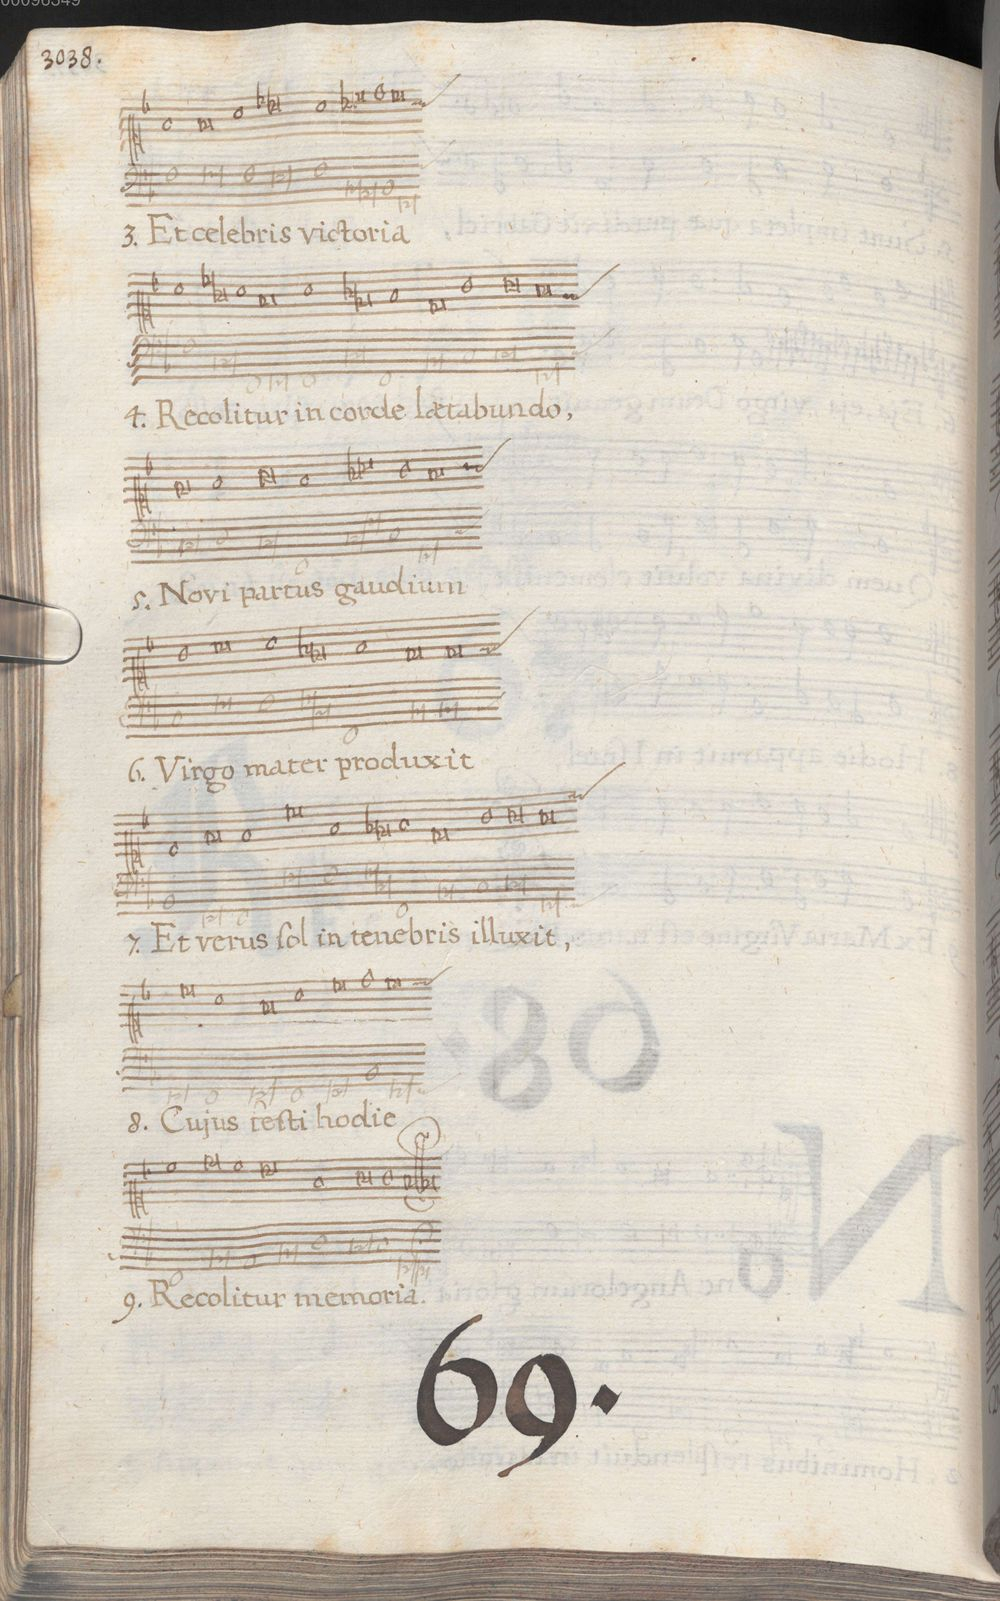 3038.
3. Et celebris victoria
4. Recolitur in corde lætabundo,
5. Novi partus gaudium
6. Virgo mater produxit
7. Et verus sol in tenebris illuxit,
8. Cujus festi hodie
9. Recolitur memoria.
69.